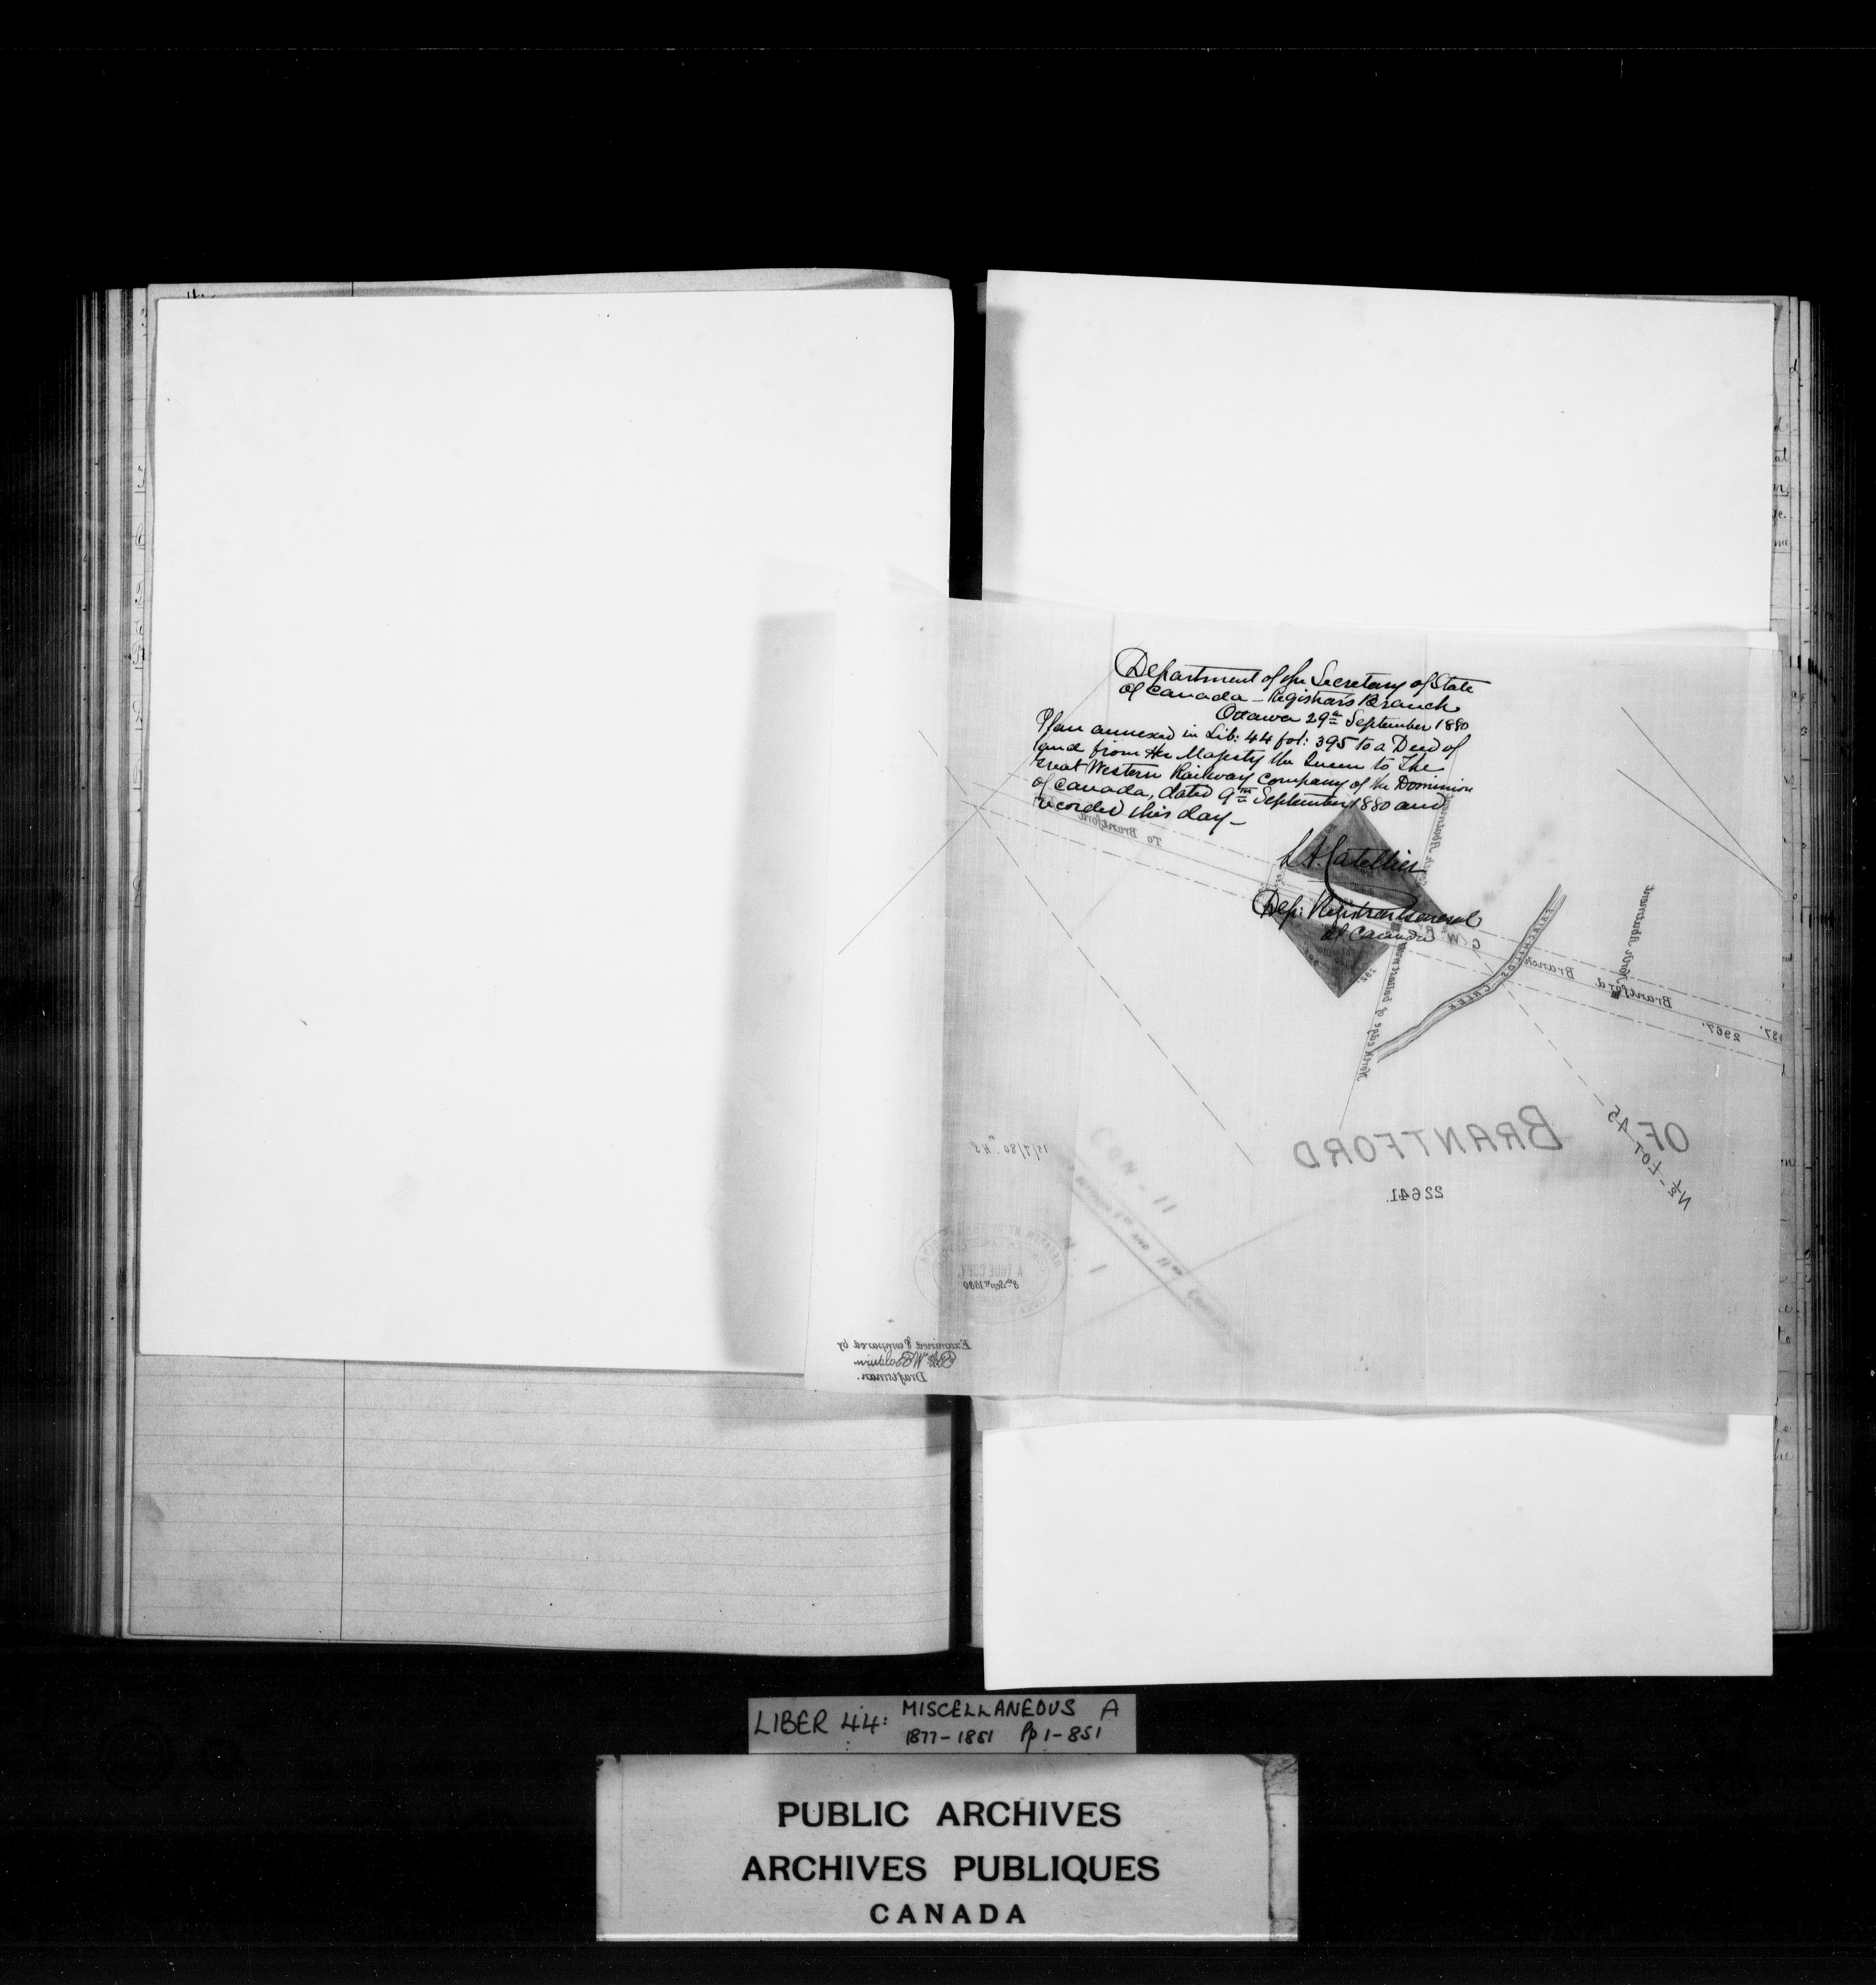 Department of the Secretary of State
of Canada – Registrar's Branch
Ottawa 29th September 1880
Plan annexed in Lib: 44 fol: 395 to a Deed of
land from Her Majesty the Queen to The
Great Western Railway Company of the Dominion
of Canada, dated 9th September 1880 and
recorded this day –
L A Catellier
Dep: Registrar General
of Canada
To Brantford
G. W. R.
Brantford Branch
FAIRCHILDS CREEK
North Abutment
North edge of
2967'
N½ LOT 45
OF BRANTFORD
22641.
15/7/80. H.S
CON - II
A TRUE COPY.
8th Sepr 1880
Examined & Compared by
Draftsman.
LIBER 44: MISCELLANEOUS A
1877-1881 Pp 1-851
PUBLIC ARCHIVES
ARCHIVES PUBLIQUES
CANADA